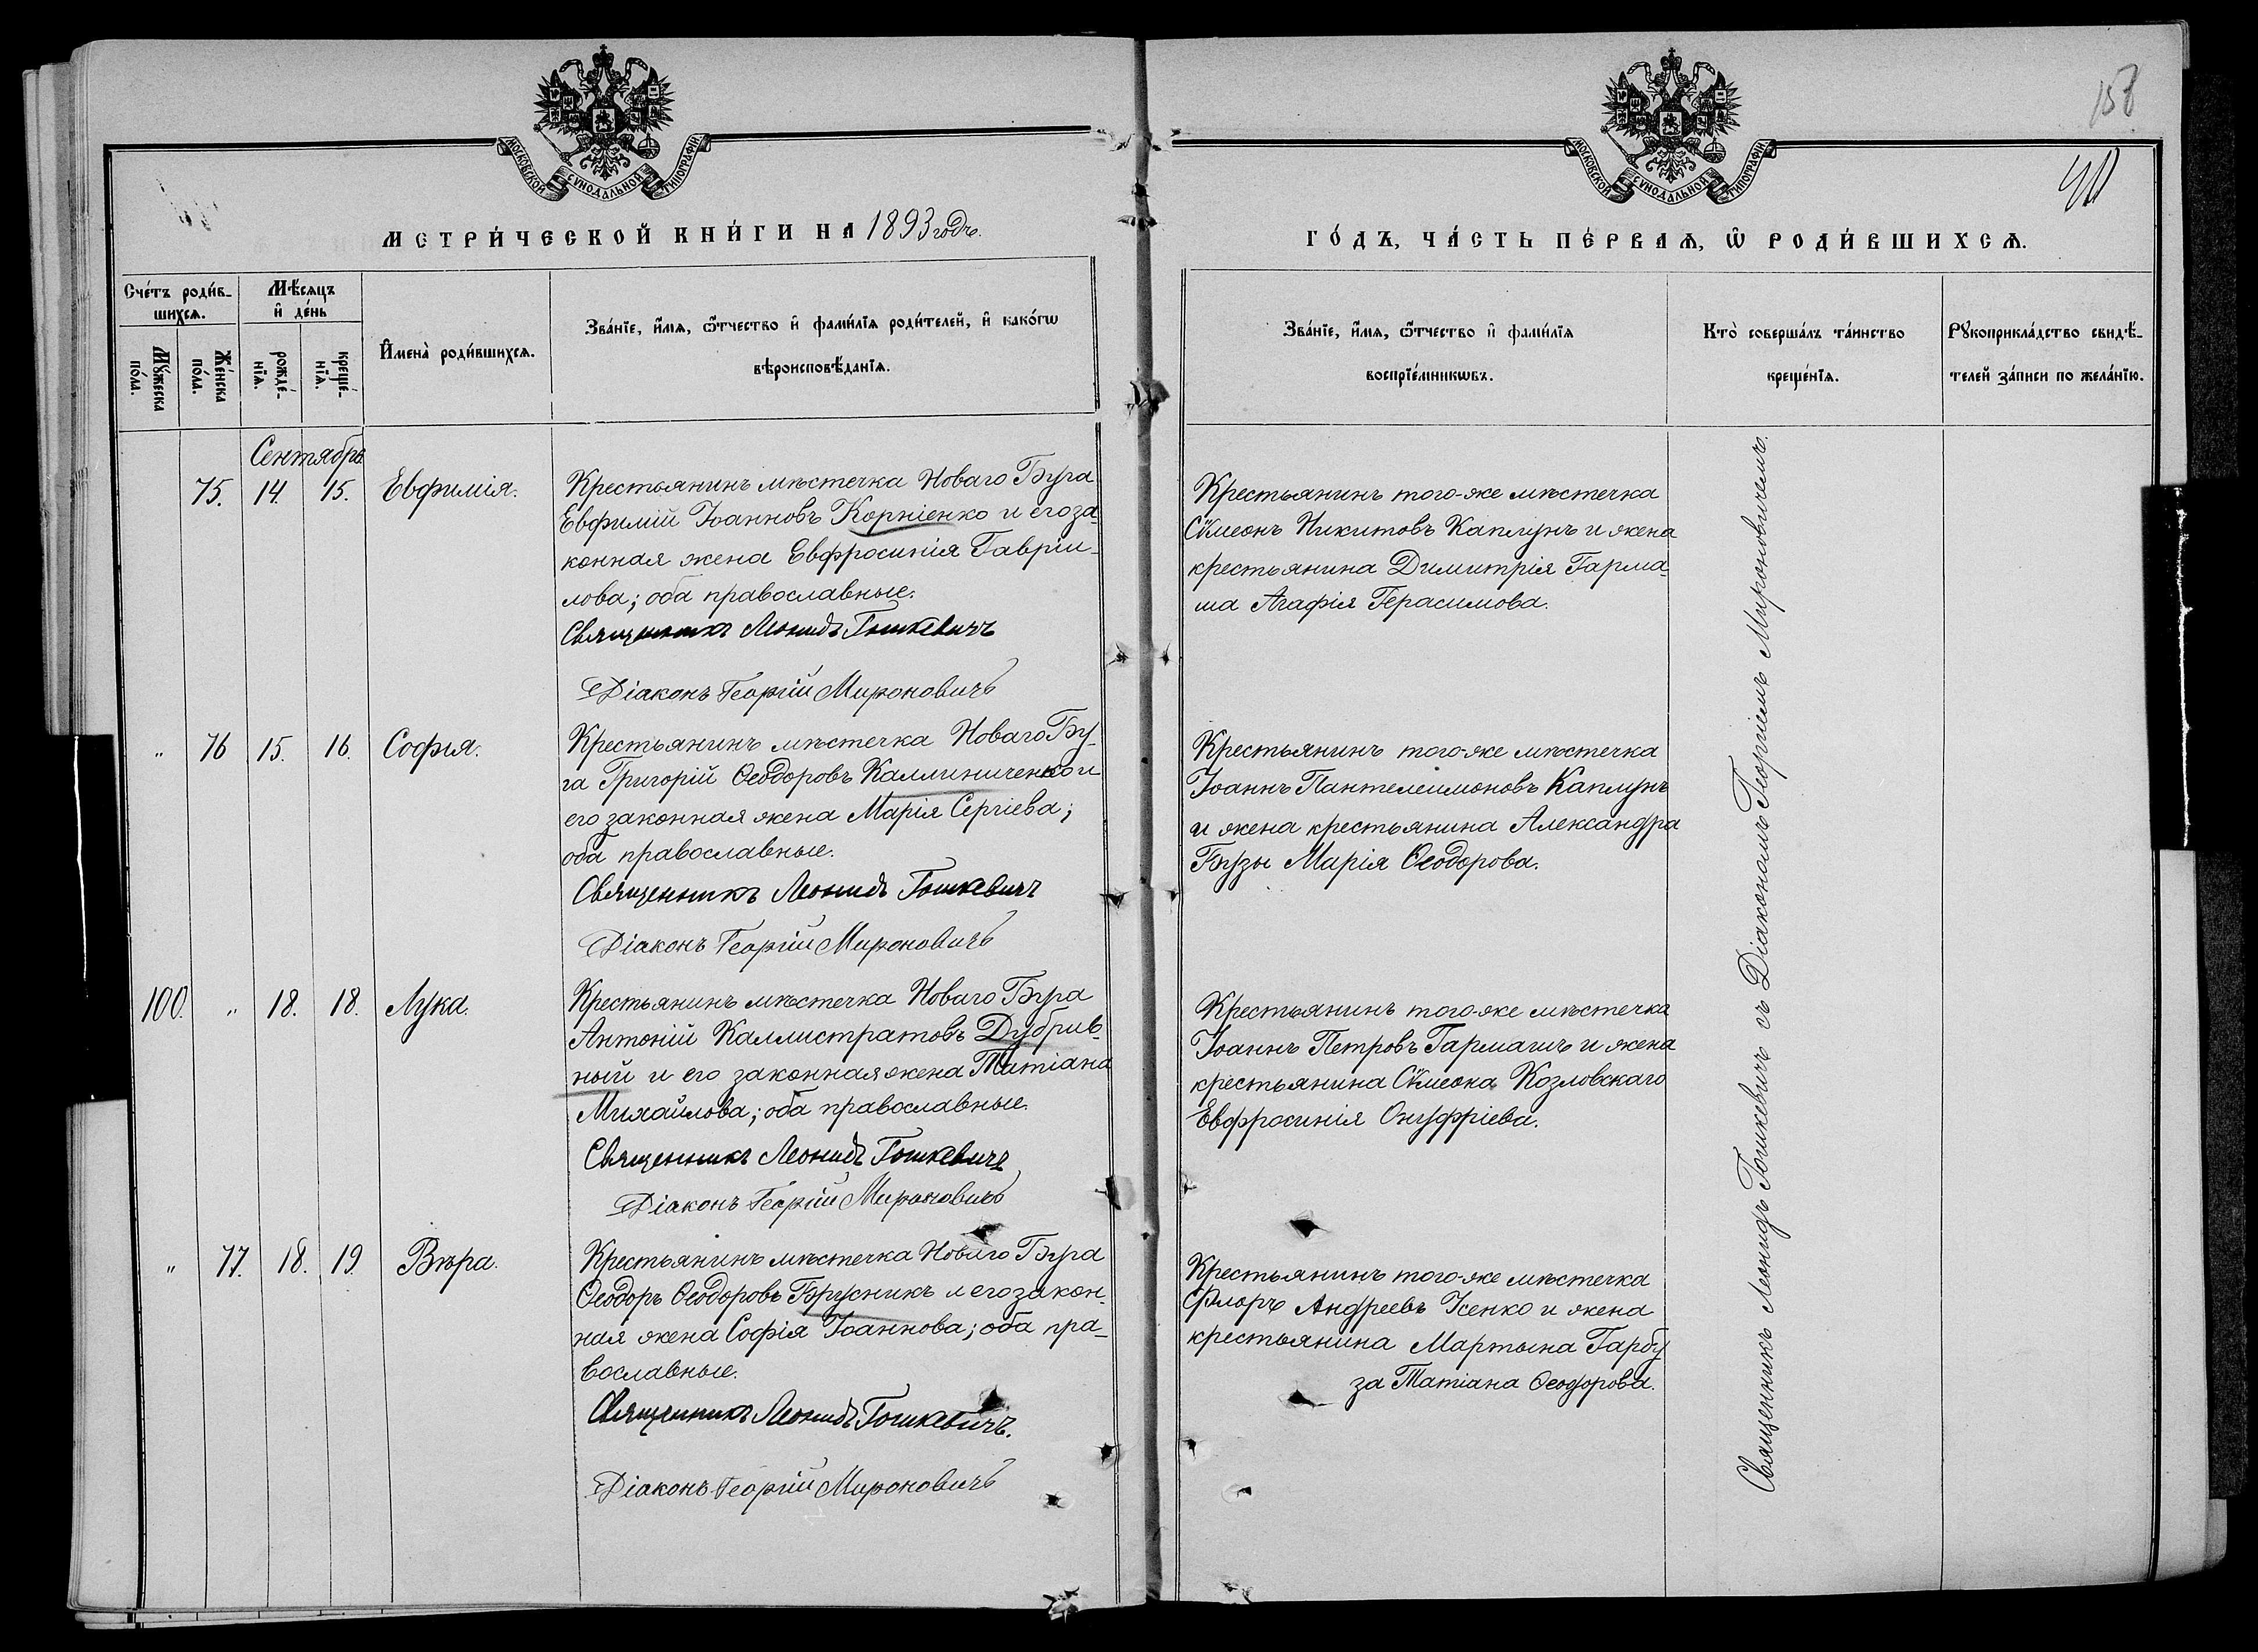 МОСКОВСКОЙ СУНОДАЛЬНОЙ ТИПОГРАФІИ.
МЕТРИ́ЧЕСКОЙ КНИ́ГИ НА 1893 годъ.
Сче́тъ роди́в-
шихсѧ.
Мѣ́сяцъ
и҆ де́нь
Мꙋ́жеска
по́ла.
Же́нска
по́ла.
рожде́-
нїѧ.
креще́-
нїѧ.
И҆мена̀ роди́вшихсѧ.
Зва́нїе, и҆́мѧ, ѻ҆́тчество и҆ фами́лїѧ роди́телей, и҆ како́гѡ
вѣроисповѣ́данїѧ.
Сентябрь.
75. 14. 15. Евфимія.
Крестьянинъ мѣстечка Новаго Буга
Евфимій Іоанновъ Корніенко и его за-
конная жена Евфросинія Гавріи-
лова; оба православные.
Священникъ Леонидъ Гошкевичъ
Діаконъ Георгій Мироновичъ
„ 76 15. 16. Софія.
Крестьянинъ мѣстечка Новаго Бу-
га Григорій Ѳеодоровъ Каллиниченко и
его законная жена Марія Сергіева;
оба православные.
Священникъ Леонидъ Гошкевичъ
Діаконъ Георгій Мироновичъ
100. „ 18. 18. Лука.
Крестьянинъ мѣстечка Новаго Буга
Антоній Каллистратовъ Дубрив-
ный и его законная жена Татіана
Михайлова; оба православные.
Священникъ Леонидъ Гошкевичъ
Діаконъ Георгій Мироновичъ
„ 77. 18. 19. Вѣра.
Крестьянинъ мѣстечка Новаго Буга
Ѳеодоръ Ѳеодоровъ Брусникъ и его закон-
ная жена Софія Іоаннова; оба пра-
вославные.
Священникъ Леонидъ Гошкевичъ.
Діаконъ Георгій Мироновичъ
158
МОСКОВСКОЙ СУНОДАЛЬНОЙ ТИПОГРАФІИ.
ГО́ДЪ, ЧА́СТЬ ПЕ́РВАѦ, Ѡ҆ РОДИ́ВШИХСѦ.
Зва́нїе, и҆́мѧ, ѻ҆́тчество и҆ фами́лїѧ
воспрїе́мникѡвъ.
Кто̀ соверша́лъ та́инство
креще́нїѧ.
Рꙋкоприкла́дство свидѣ́-
телей за́писи по жела́нїю.
Крестьянинъ того-же мѣстечка
Сѵмеонъ Никитовъ Каплунъ и жена
крестьянина Димитрія Гарма-
ша Агафія Герасимова.
Крестьянинъ того-же мѣстечка
Іоаннъ Пантелеимоновъ Каплунъ
и жена крестьянина Александра
Бузы Марія Ѳеодорова.
Крестьянинъ того-же мѣстечка
Іоаннъ Петровъ Гармашъ и жена
крестьянина Сѵмеона Козловскаго
Евфросинія Онуфріева.
Крестьянинъ того-же мѣстечка
Флоръ Андреевъ Усенко и жена
крестьянина Мартына Гарбу
за Татіана Ѳеодорова.
Священникъ Леонидъ Гошкевичъ съ Діакономъ Георгіемъ Мироновичемъ.